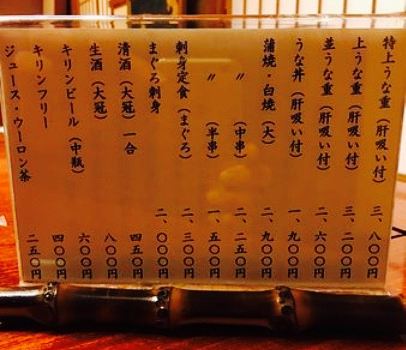 特上うな重(肝吸い付) 三、八〇〇円
上うな重(肝吸い付) 三、二〇〇円
並うな重(肝吸い付) 二、六〇〇円
うな丼(肝吸い付) 一、九〇〇円
蒲焼・白焼(大) 二、九〇〇円
〃(中串) 二、二五〇円
〃(半串) 一、五〇〇円
刺身定食(まぐろ) 二、三〇〇円
まぐろ刺身 二、〇〇〇円
清酒(大冠)一合 四五〇円
生酒(大冠) 八〇〇円
キリンビール(中瓶) 六〇〇円
キリンフリー 四〇〇円
ジュース・ウーロン茶 二五〇円